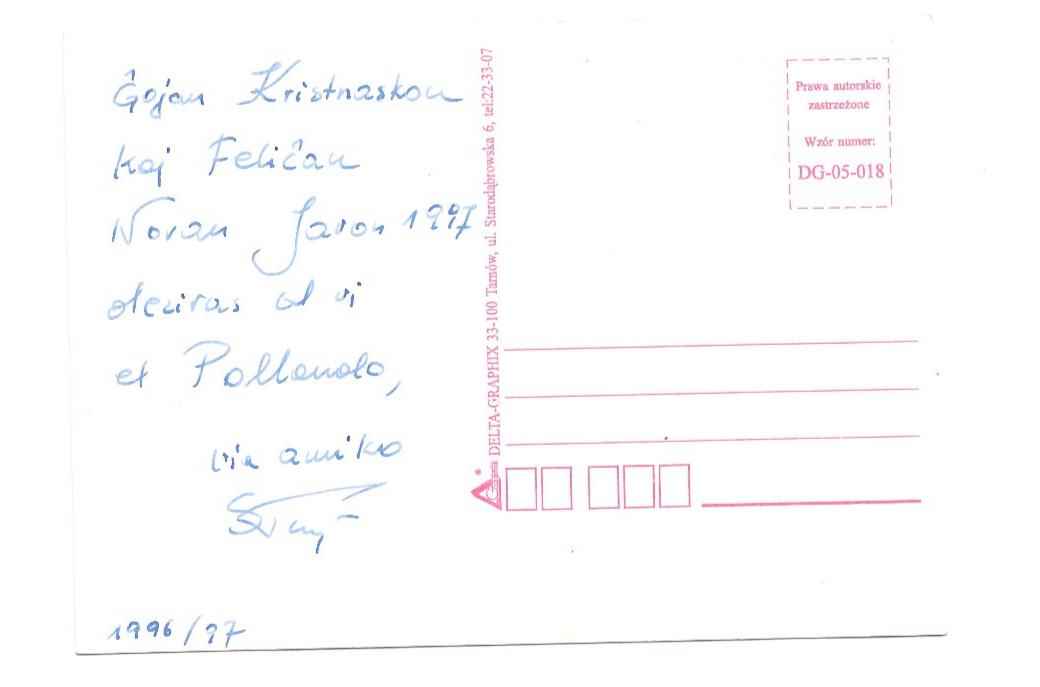 Ĝojan Kristnaskon
kaj Feliĉan
Novan Jaron 1997
deziras al vi
el Pollando,
via amiko
1996/97
DELTA-GRAPHIX 33-100 Tarnów, ul. Starodąbrowska 6, tel:22-33-07
Prawa autorskie
zastrzeżone
Wzór numer:
DG-05-018